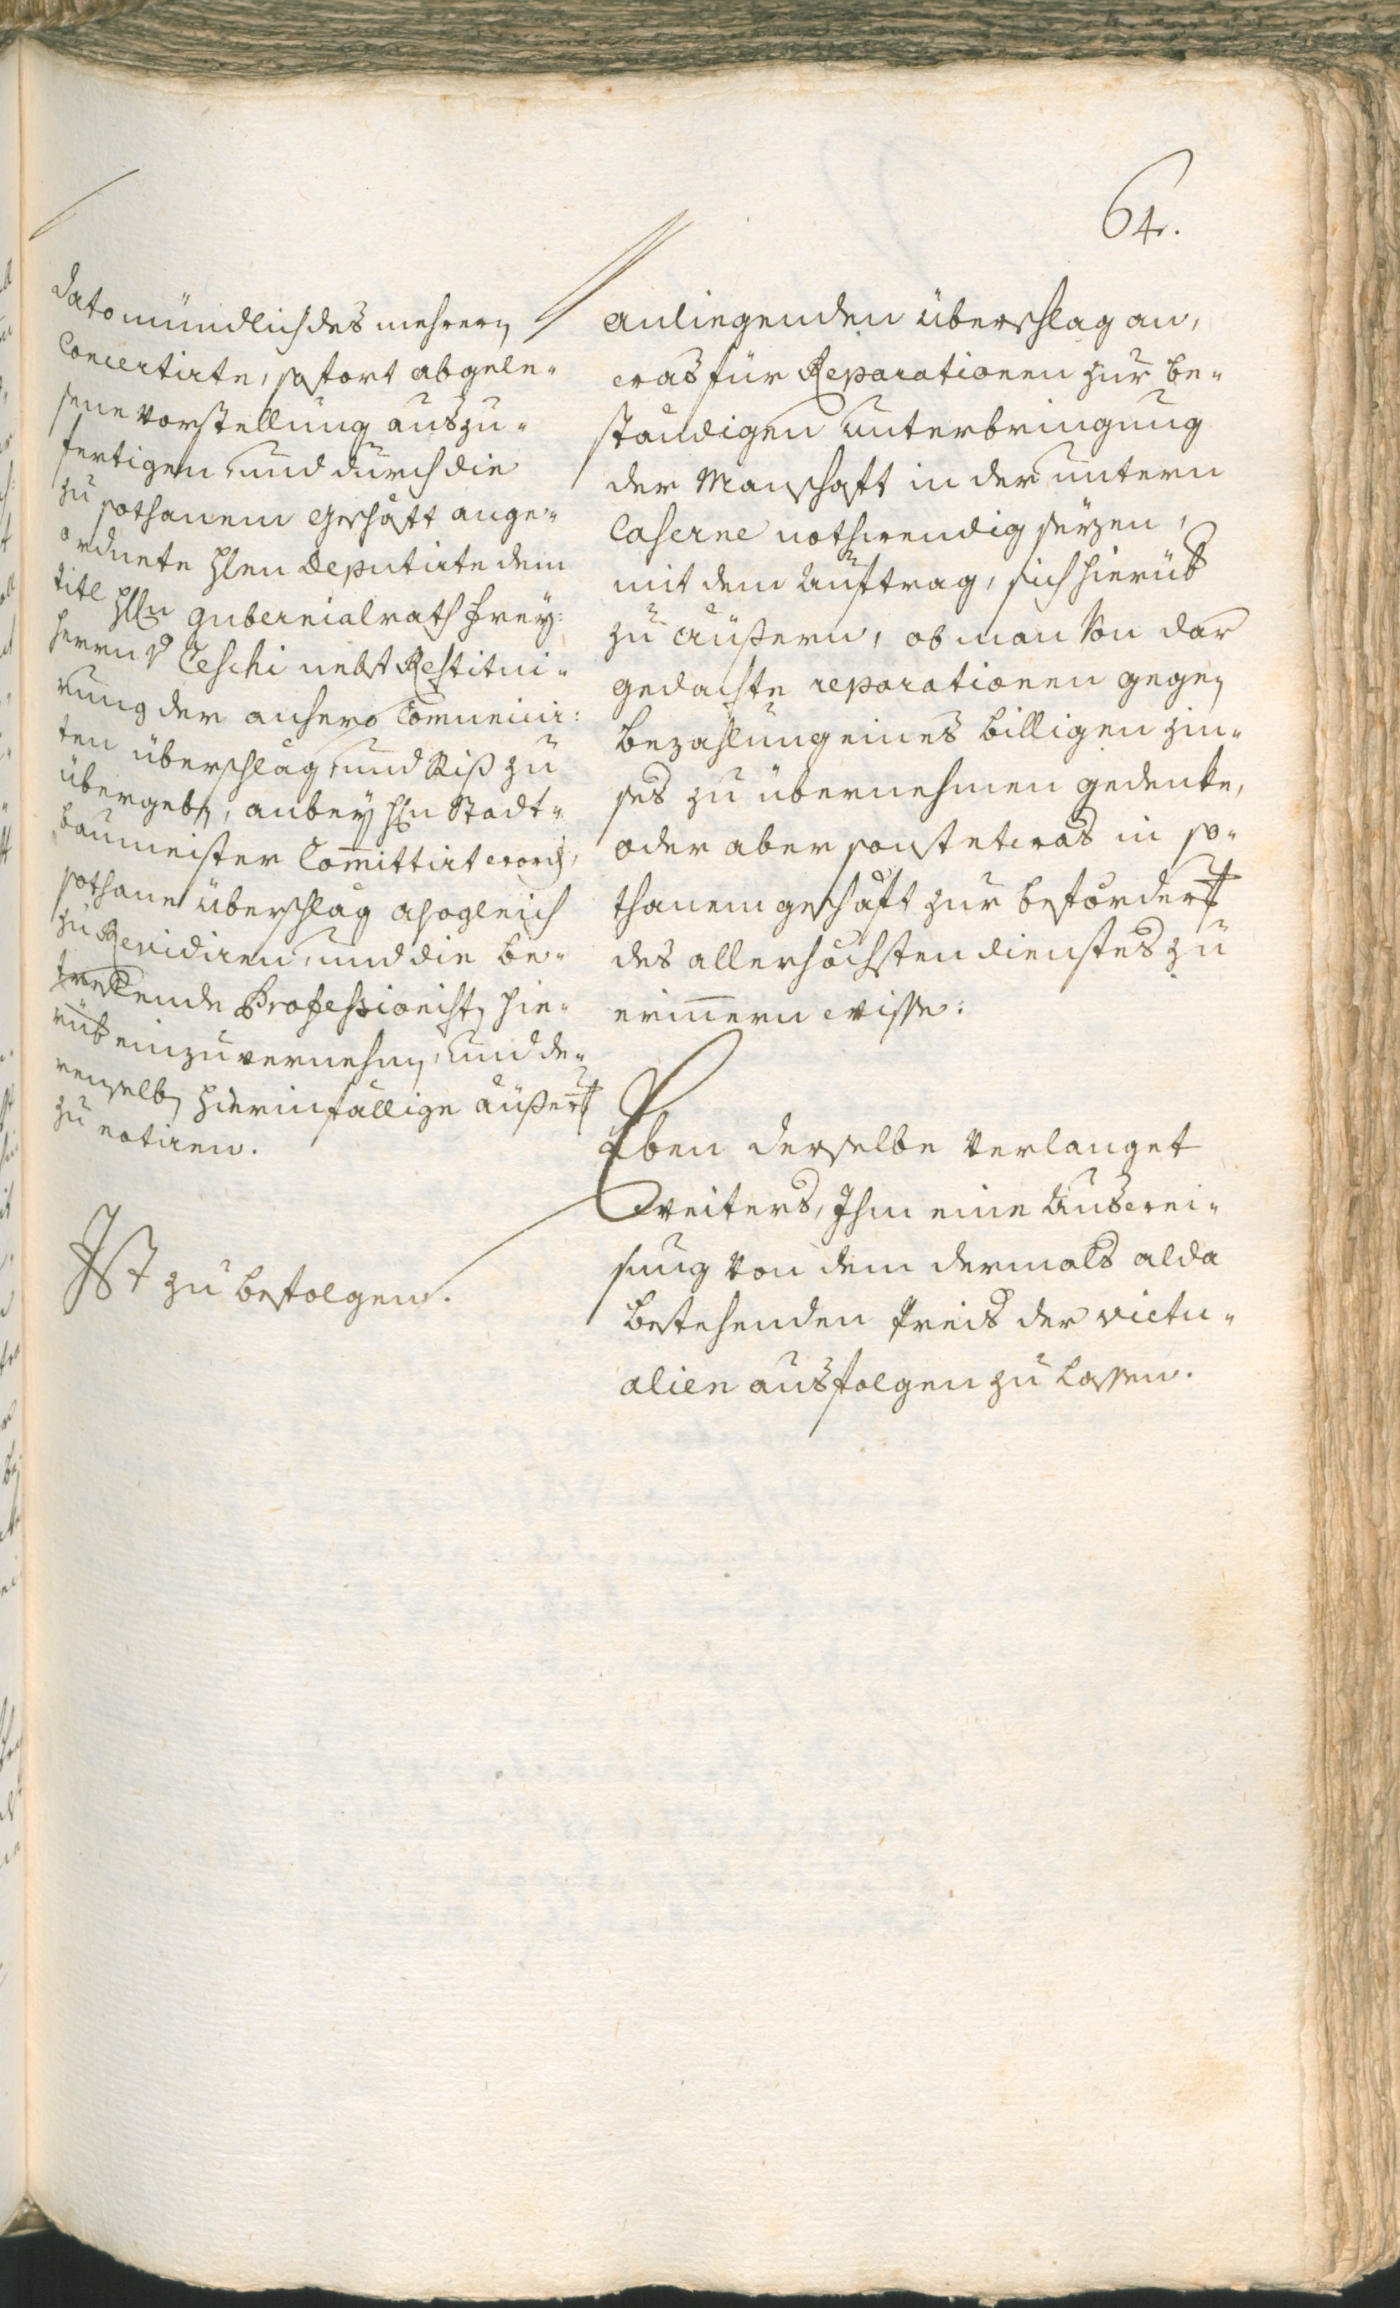 64.
dato mündlich des mehrern
Concertirte, sofort abgele-
sene Vorstellung auszu-
fertigen und durch die
zu sothanem Geschäft ange-
ordnete hlen Deputirte dem
titl hln Gubernialrath Frey:
herrn v Ceschi nebst Restitui-
rung der anhero Comunicir:
ten überschlag und Riß zu
übergebn, anbey hln Stadt-
baumeister Committirt word,
sothane überschläg alsogleich
zu Revidiren, und die be-
treffende Professionistn hie-
rüb einzuvernehmen, und de-
renselbn hierinfällige äußer
zu notiren.
Ist zu befolgen.
anliegenden überschlag an,
was für Reparationen zur be-
ständigen Unterbringung
der Manschaft in der untern
Caserne nothwendig seyen,
mit dem Auftrag, sich hierüb
zu äußern, ob man von dar
gedachte reparationen gegen
bezahlung eines billigen Zin-
ses zu übernehmen gedenke,
oder aber sonst etwas in so-
thanem geschäft zur beförder
des allerhöchsten dienstes zu
erinnern wisse:
Eben derselbe verlanget
weiters, Ihm eine Auswei-
sung von dem dermals alda
bestehenden Preis der victu-
alien ausfolgen zu lassen.